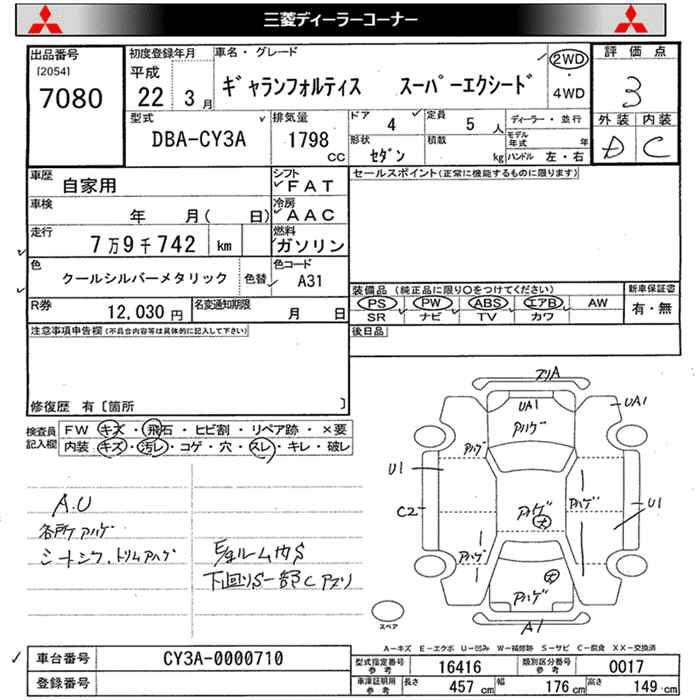 三菱ディーラーコーナー
出品番号
[2054]
7080
初度登録年月
平成
22 3月
車名・グレード
ギャランフォルティス スーパーエクシード
2WD
・
4WD
評価点
3
外装 内装
D C
型式
DBA-CY3A
排気量
1798
CC
ドア
4
定員
5 人
形状
セダン
積載
kg
ディーラー・並行
モデル年式 年
ハンドル 左・右
車歴
自家用
シフト
FAT
車検
年 月( 日)
冷房
AAC
走行
7万9千742 km
燃料
ガソリン
色
クールシルバーメタリック
色替
色コード
A31
R券
12,030 円
名変通知期限
月 日
セールスポイント(正常に機能するものに限ります)
装備品(純正品に限り○をつけてください)
新車保証書
PS PW ABS エアB AW
SR ナビ TV カワ
有・無
注意事項申告欄(不具合内容等は具体的に記入して下さい)
後日品
修復歴 有〔箇所 〕
検査員
記入欄
FW キズ・飛石・ヒビ割・リペア跡・×要
内装 キズ・汚レ・コゲ・穴・スレ・キレ・破レ
A.U
各所アハゲ
シートシワ.トリムアハゲ
下回りS一部Cアズリ
ズリA
UA1
アハゲ
UA1
アハゲ
U1
C2
アハゲ
大
アハゲ
U1
アハゲ
大
アハゲ
A1
スペア
A-キズ E-エクボ U-凹み W-補修跡 S-サビ C-腐食 XX-交換済
車台番号
CY3A-0000710
登録番号
型式指定番号
参考
16416
類別区分番号
参考
0017
車庫証明用
参考
長さ 457 cm 幅 176 cm 高さ 149 cm